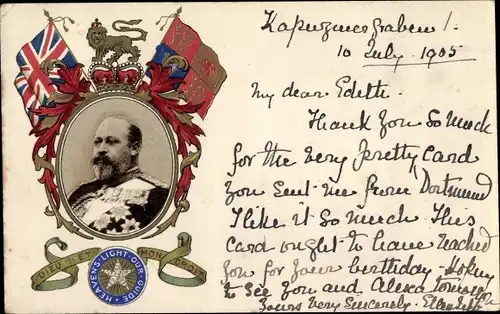 Kapuzinergraben 1.
10 July. 1905
My dear Edith.
Thank you so much
for the very pretty card
you sent me from Dortmund
I like it so much. This
card ought to have reached
you for your birthday. Hoping
to see you and Alexa tomorrow
Yours very sincerely. Ellen
DIEU ET MON DROIT
HEAVENS·LIGHT·OUR·GUIDE